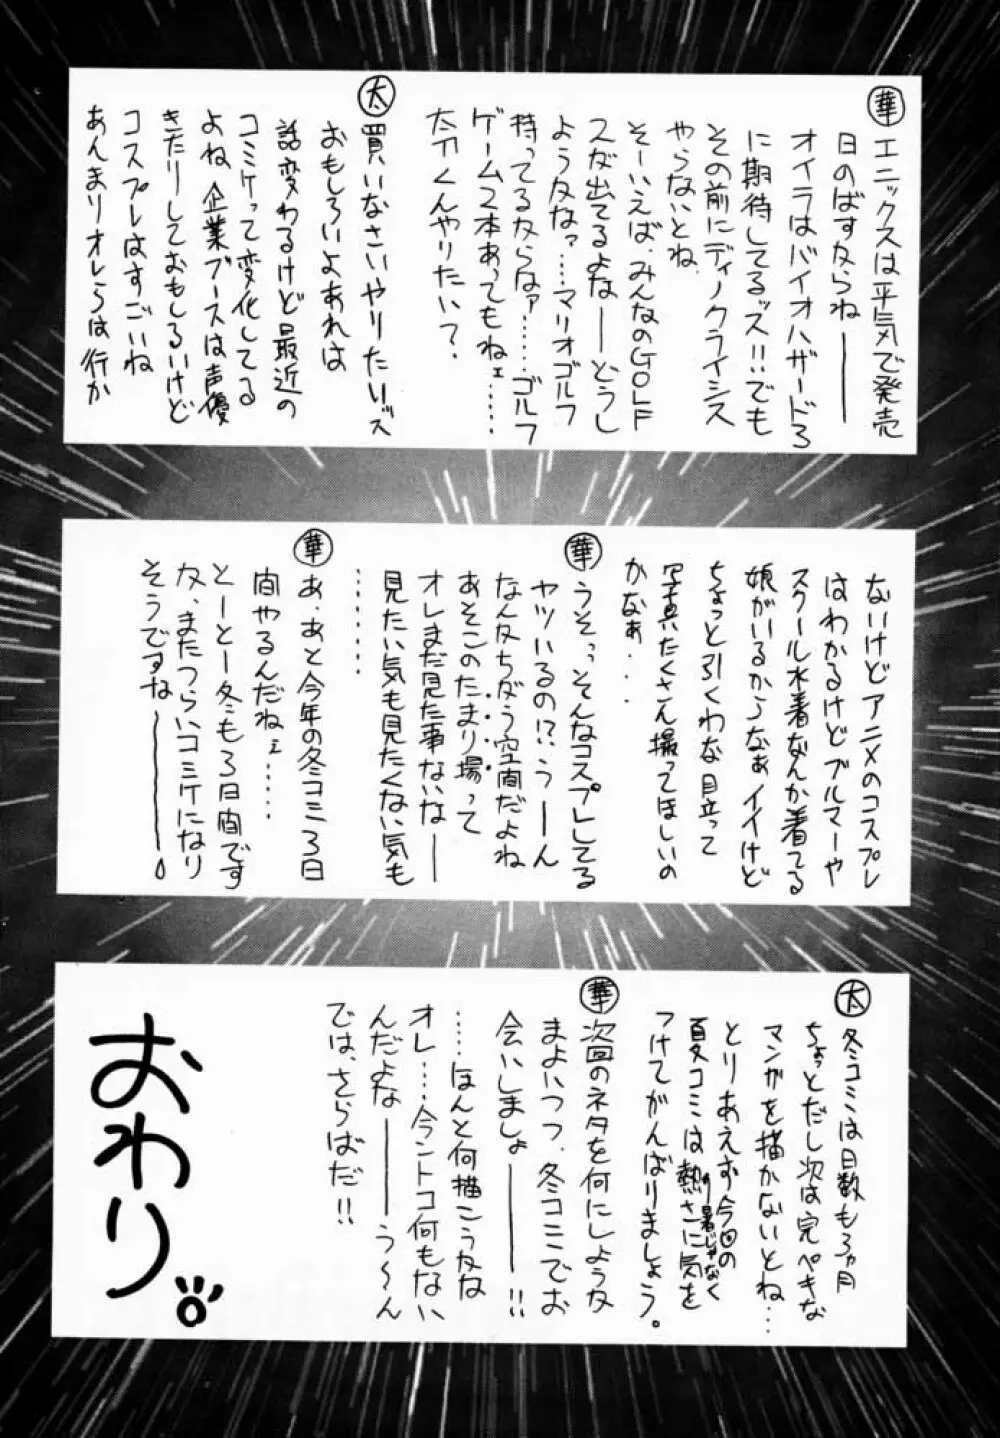 華 エニックスは平気で発売
日のばすならね――
オイラはバイオハザード3
に期待してるッス!!でも
その前にディノクライシス
やらないとね。
そーいえば、みんなのGOLF
スグ出てるよな――どうし
ようかなァ……マリオゴルフ
持ってるからなァ……ゴルフ
ゲーム2本あってもねェ……
太刀くんやりたい?
太 買いなさいやりたいッス
おもしろいよあれは
話変わるけど最近の
コミケって変化してる
よね、企業ブースは声優
きたりしておもしろいけど
コスプレはすごいね
あんまりオレらは行か
ないけどアニメのコスプレ
はわかるけどブルマーや
スクール水着なんか着てる
娘がいるからなぁイイけど
ちょっと引くわな目立って
写真たくさん撮ってほしいの
かなぁ...
華 うそっっそんなコスプレしてる
ヤツいるの!?うーーん
なんかちがう空間だよね
あそこのたまり場って
オレまだ見た事ないな――
見たい気も見たくない気も
……
華 あ、あと今年の冬コミ3日
間やるんだねェ……
とーとー冬も3日間です
な、またつらいコミケになり
そうですな――。
太 冬コミは日数も3ヵ月
ちょっとだし次は完ペキな
マンガを描かないとね…
とりあえず今回の
夏コミは熱さに気を
暑じゃなく
つけてがんばりましょう。
華 次回のネタを何にしようか
まよいつつ、冬コミでお
会いしましょ――!!
……ほんと何描こうかな
オレ…今ントコ何もない
んだよな――う〜ん
では、さらばだ!!
おわり。